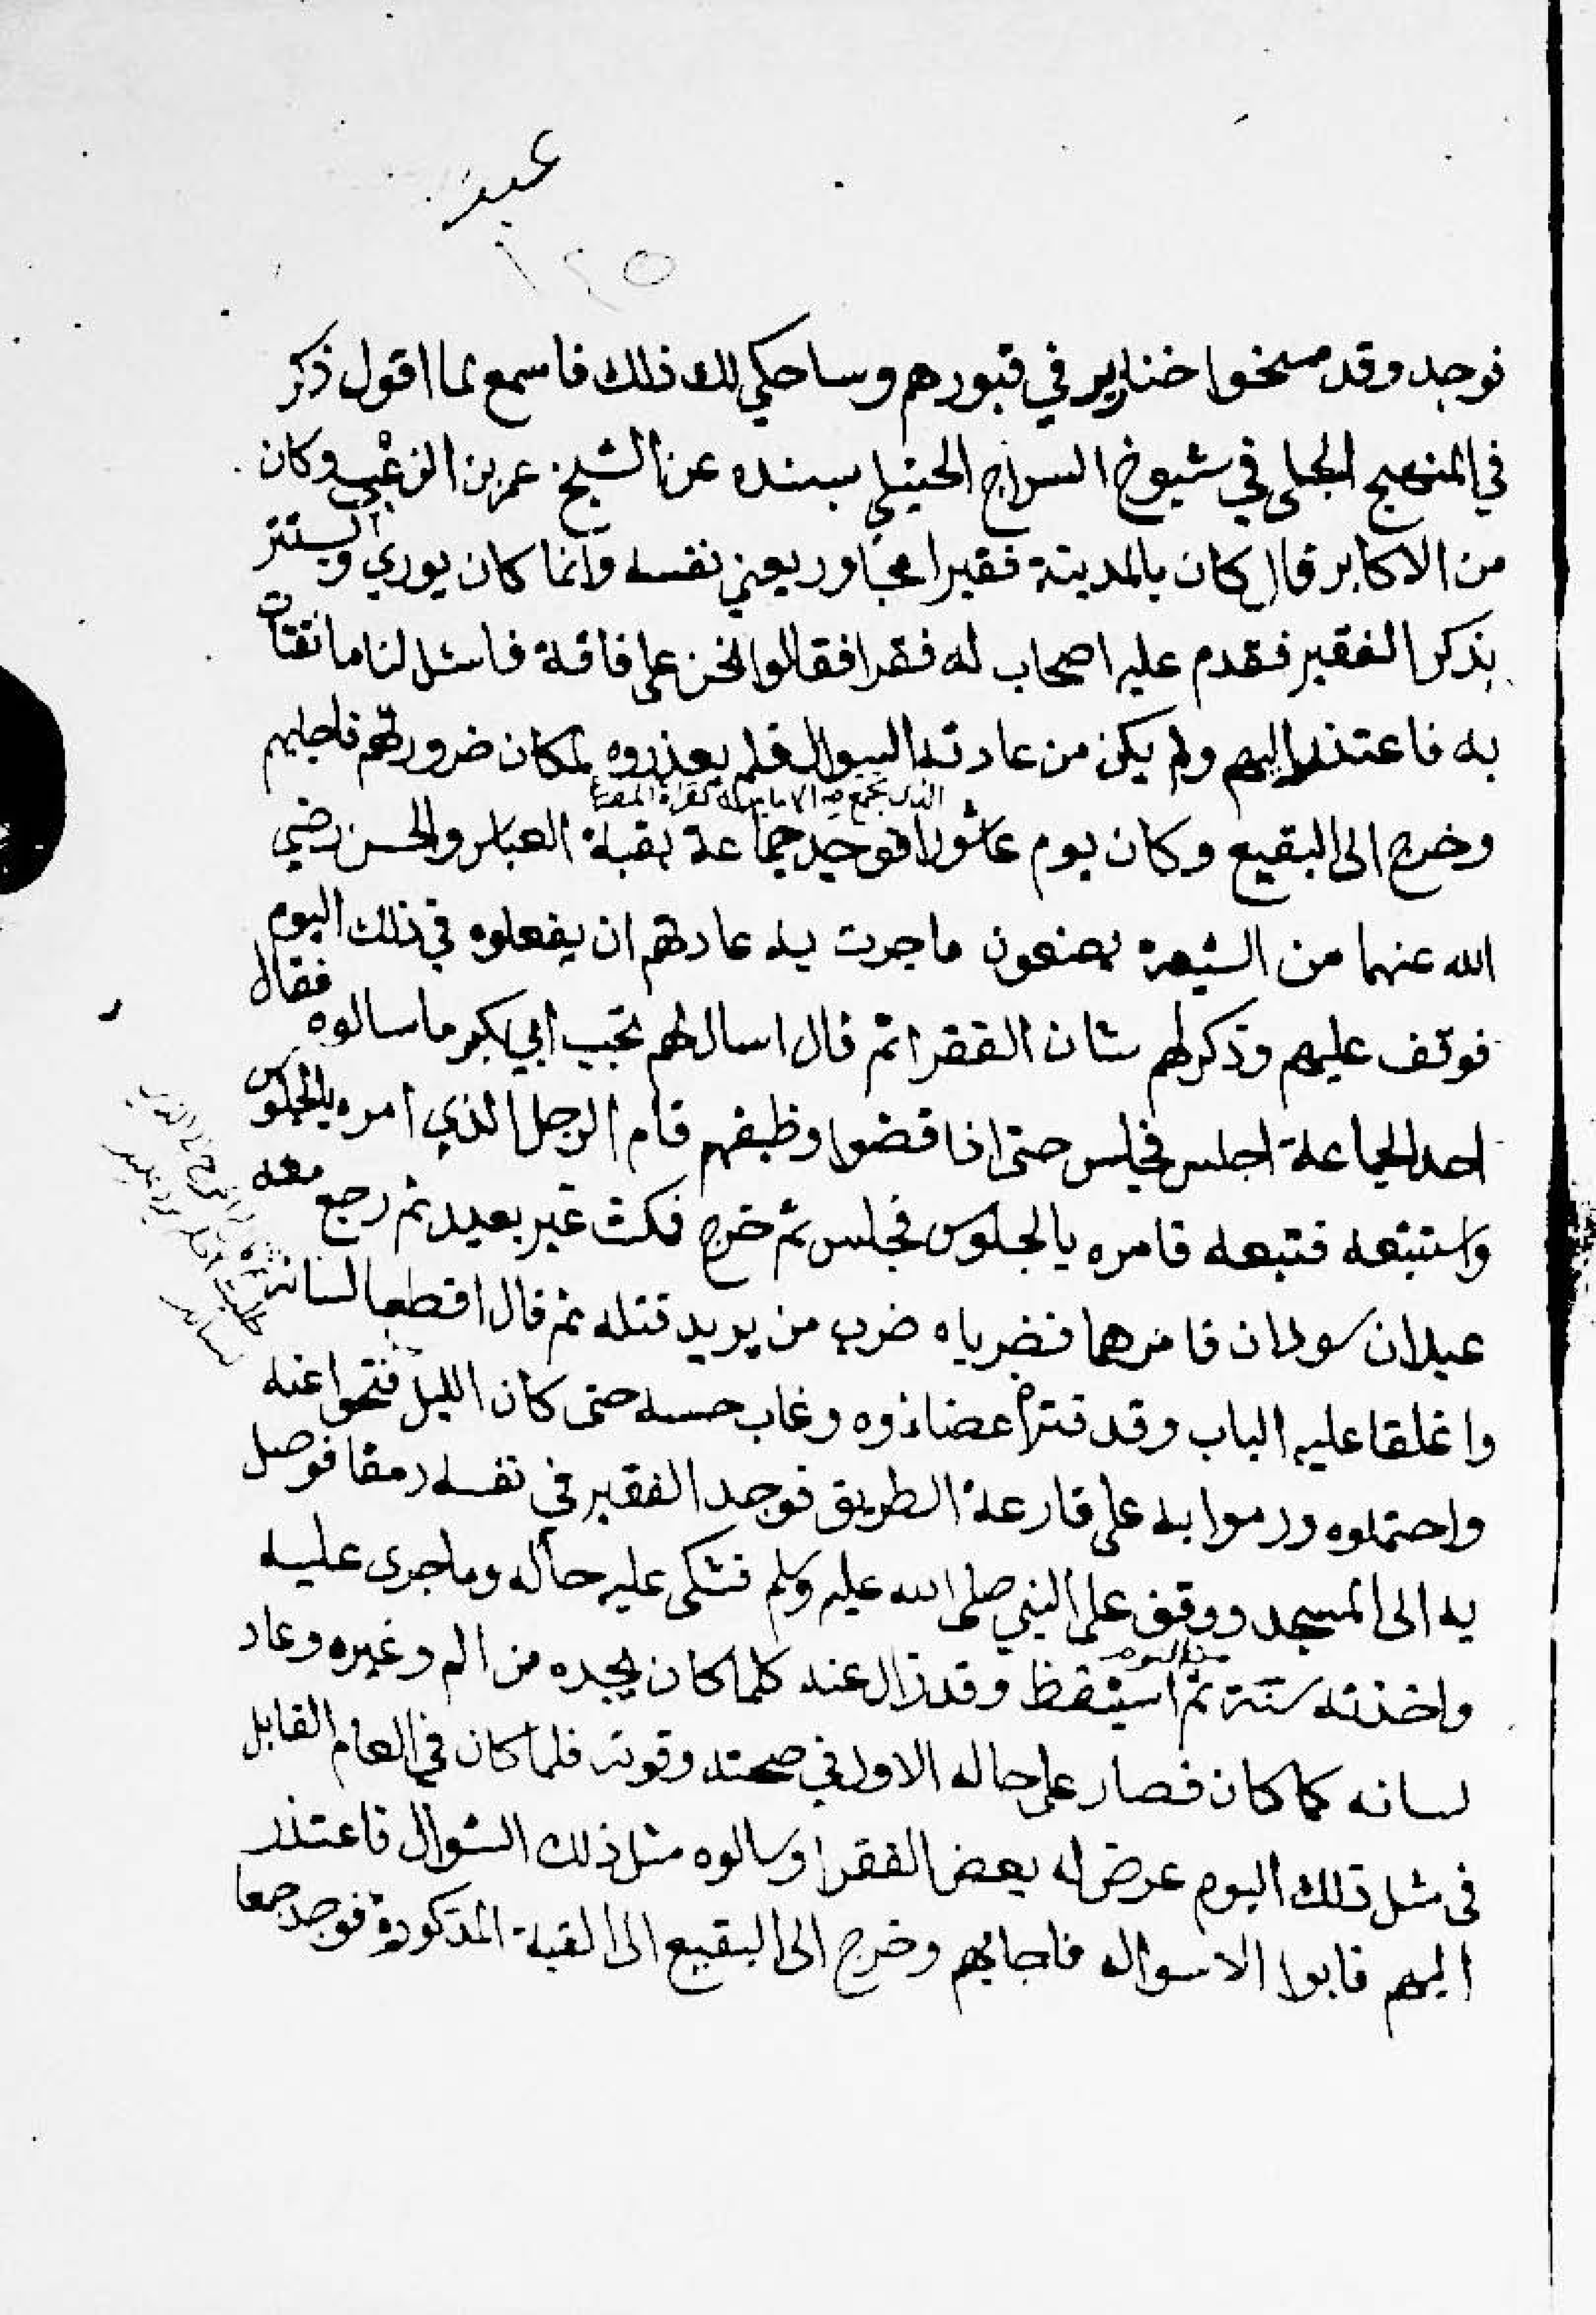 عبد
١٢٥
نوجد وقد مسخوا خنازير في قبورهم وساحكي لك ذلك فاسمع لما اقول ذكر
في المنهج الجلى في شيوخ السراج الحنبلي بسنده عن الشيخ عمر بن الزغبي وكان
من الاكابر قال كان بالمدينة فقيرا مجاور يعني نفسه وانما كان يوري اويستتر
بذكر الفقير فقدم عليه اصحاب له فقرا فقالوا نحن على فاقة فاسئل لنا ما نقتات
به فاعتذر اليهم ولم يكن من عادته السوال فلم يعذروه لمكان ضرورتهم فاجابهم
الذى تجتمع فيه الامامية لقراة المصرع
وخرج الى البقيع وكان يوم عاشورا فوجد جماعة بقبة العباس والحسن رضي
الله عنهما من الشيعة يصنعون ما جرت به عادتهم ان يفعلوه في ذلك اليوم
فوقف عليهم وذكر لهم شان الفقرا ثم قال اسالهم بحب ابي بكر ما سالوه فقال
احد الجماعة اجلس فجلس حتى اذا قضوا وظيفهم قام الرجل الذي امره بالجلوس
واستتبعه فتبعه فامره بالجلوس فجلس ثم خرج فمكث غير بعيد ثم رجع معه
عبدان سودان فامرهما فضرباه ضرب من يريد قتله ثم قال اقطعا لسانه
لسانه
واغلقا عليه الباب وقد فترة اعضاؤه وغاب حسه حتى كان الليل فتحوا عنه
واحتملوه ورموا به على قارعة الطريق فوجد الفقير في نفسه رمقا فوصل
به الى المسجد ووقف على النبي صلى الله عليه وسلم فشكى عليه حاله وما جرى عليه
من النوم
واخذته سنة ثم استيقظ وقد زال عنه كلما كان يجده من الم وغيره وعاد
لسانه كما كان فصار على حاله الاول في صحته وقوته فلما كان في العام القابل
في مثل ذلك اليوم عرض له بعض الفقرا وسالوه مثل ذلك السوال فاعتذر
اليهم فابوا الا سواله فاجابهم وخرج الى البقيع الى القبة المذكورة فوجد جمعا